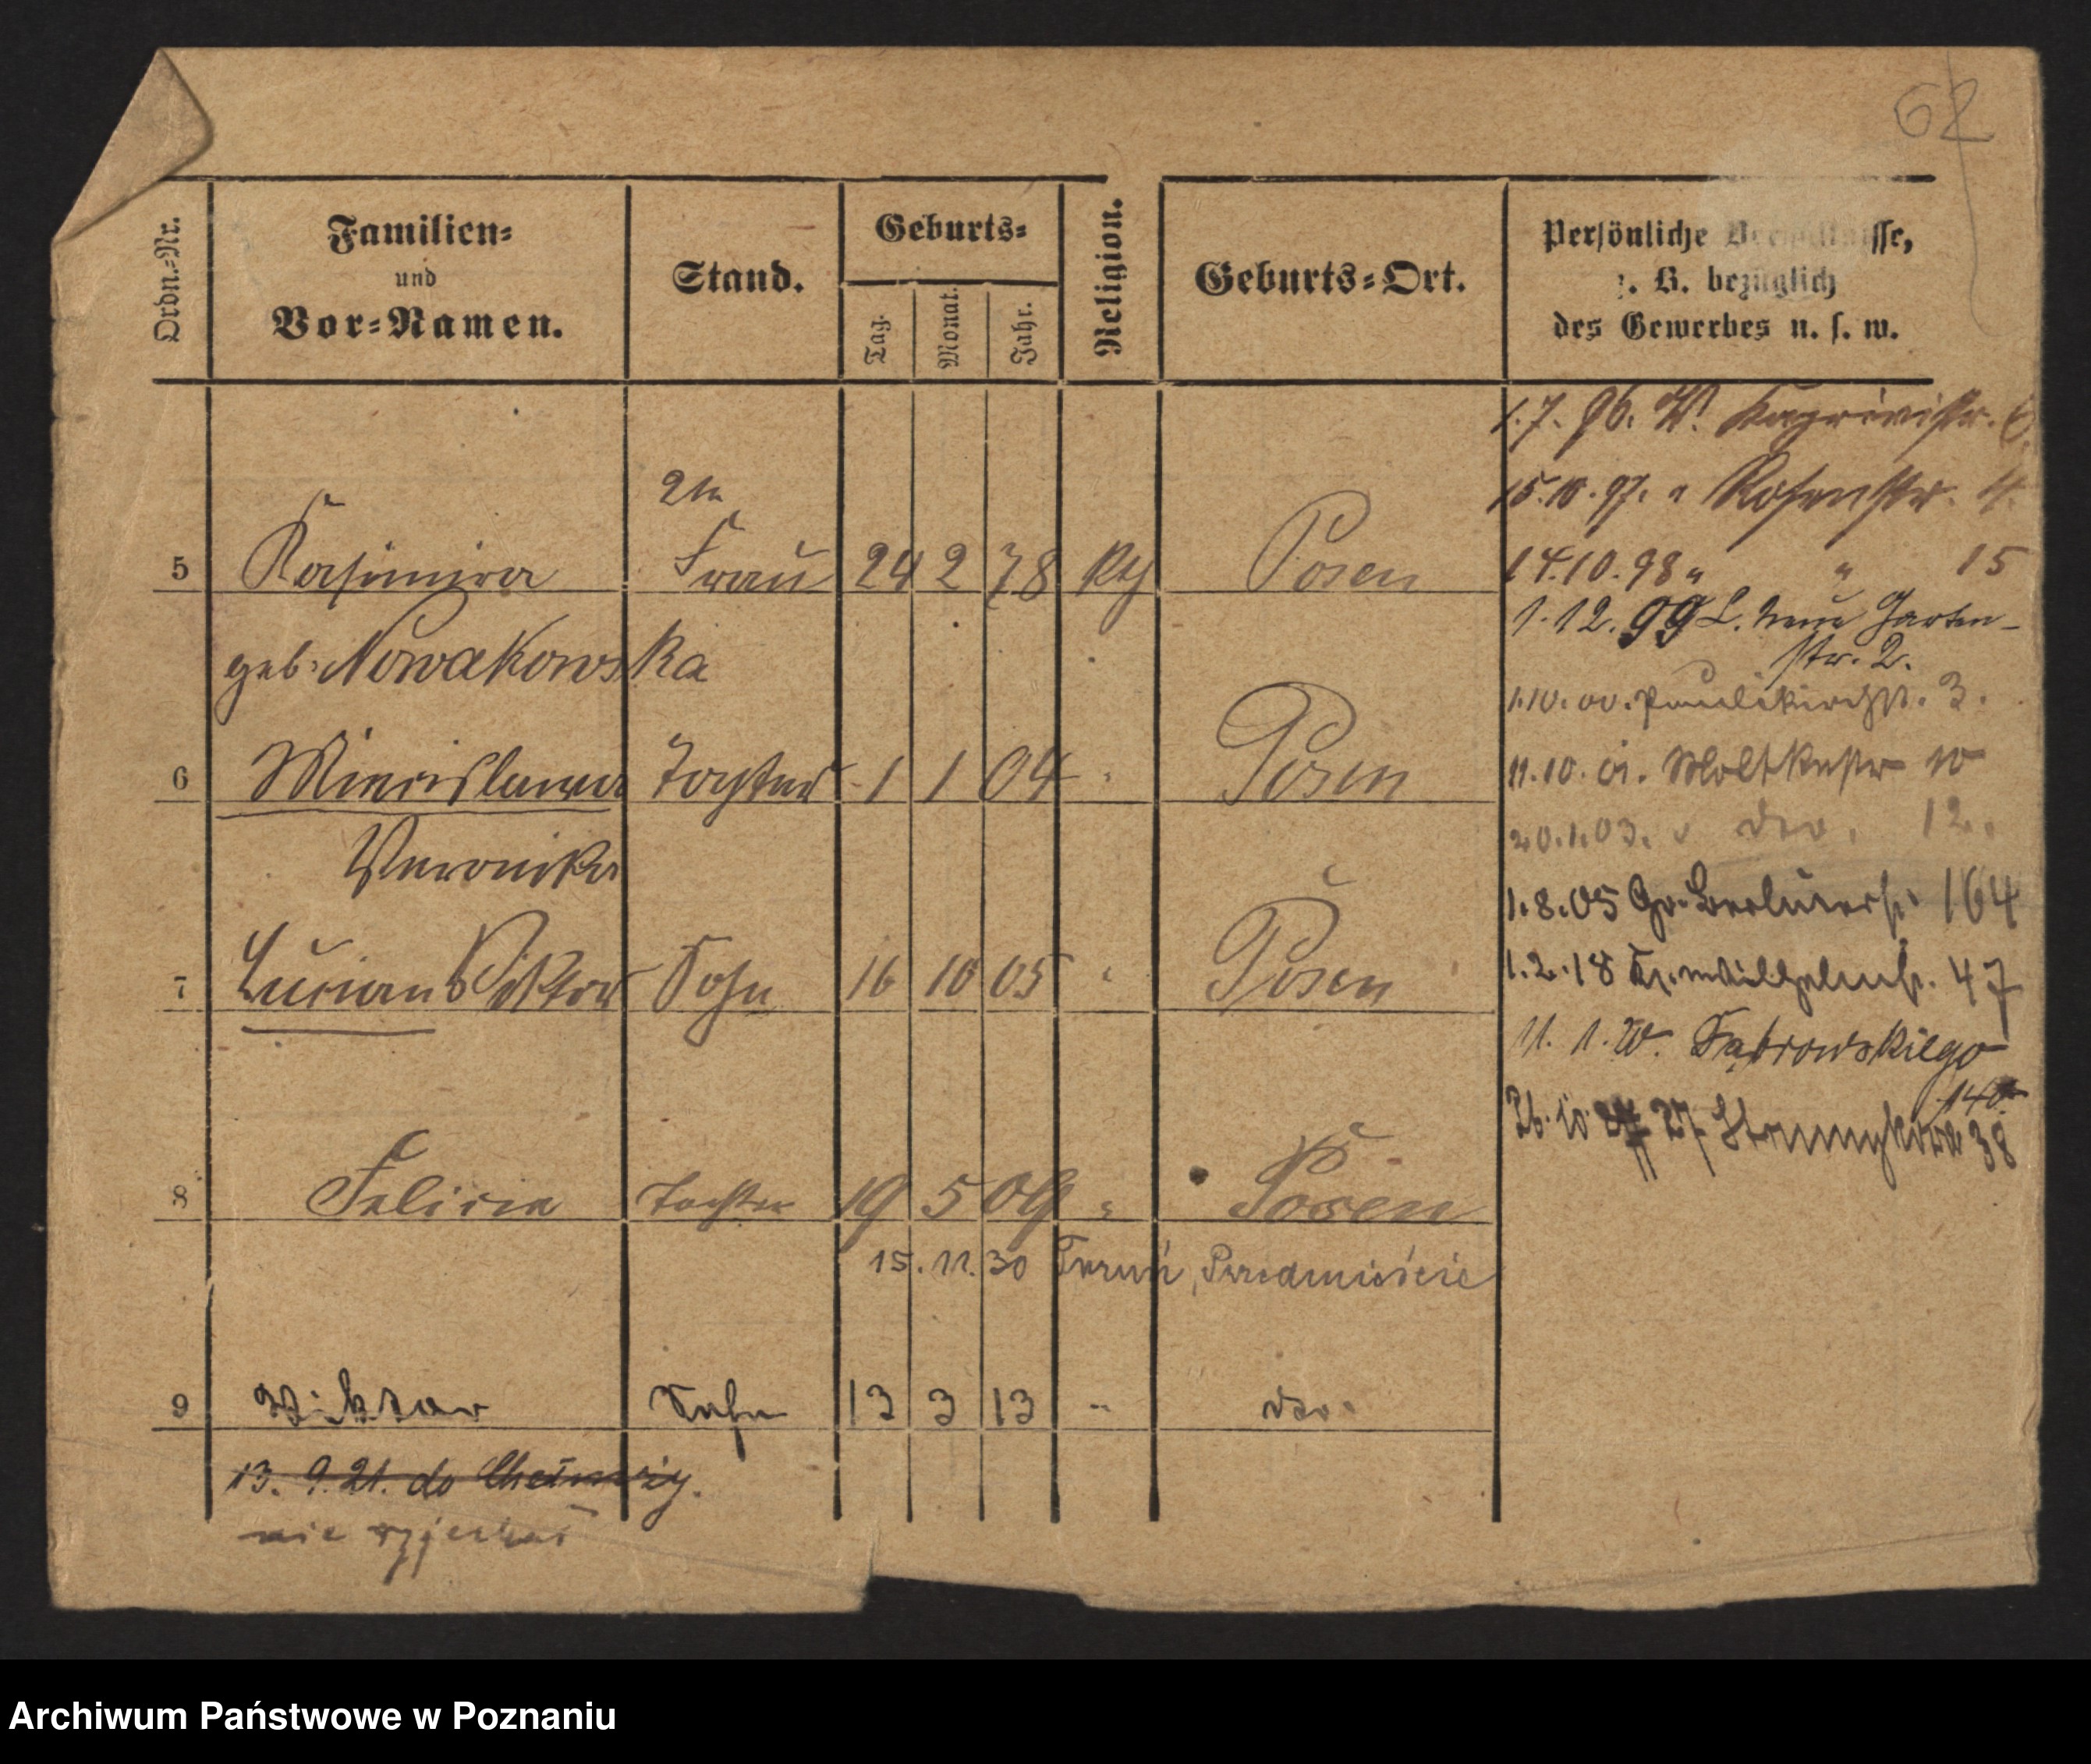 62
Ordn.-Nr. Familien- und Vor-Namen. Stand. Geburts- Tag. Monat. Jahr. Religion. Geburts-Ort. Persönliche Verhältnisse, z. B. bezüglich des Gewerbes u. s. w.
1.7.96. W. Kaprivistr. 6.
15.10.97. " Rosenstr. 4.
2te
5 Kasimira Frau 24 2 78 kth Posen
14.10.98 " " 15
1.12.99 L. Neue Garten-
str. 2.
geb. Nowakowska
1.10.00. Paulikirchstr. 3.
6 Miecislawa Tochter 1 1 04 " Posen
11.10.01. Moltkestr 10
20.1.03. " dto. 12.
Veronika
1.8.05 Gr. Berlinerstr. 164
7 Lucian Viktor Sohn 16 10 05 " Posen
1.2.18 Kr. Wilhelmstr. 47
11. 1. 20. Dąbrowskiego
140
26.10 27 38
8 Felicia Tochter 19 5 09 " Posen
15.11.30 Toruń, Przedmieście
9 Viktor Sohn 13 3 13 " dto.
13. 9. 21. do Chełmży.
nie wyjechał
Archiwum Państwowe w Poznaniu